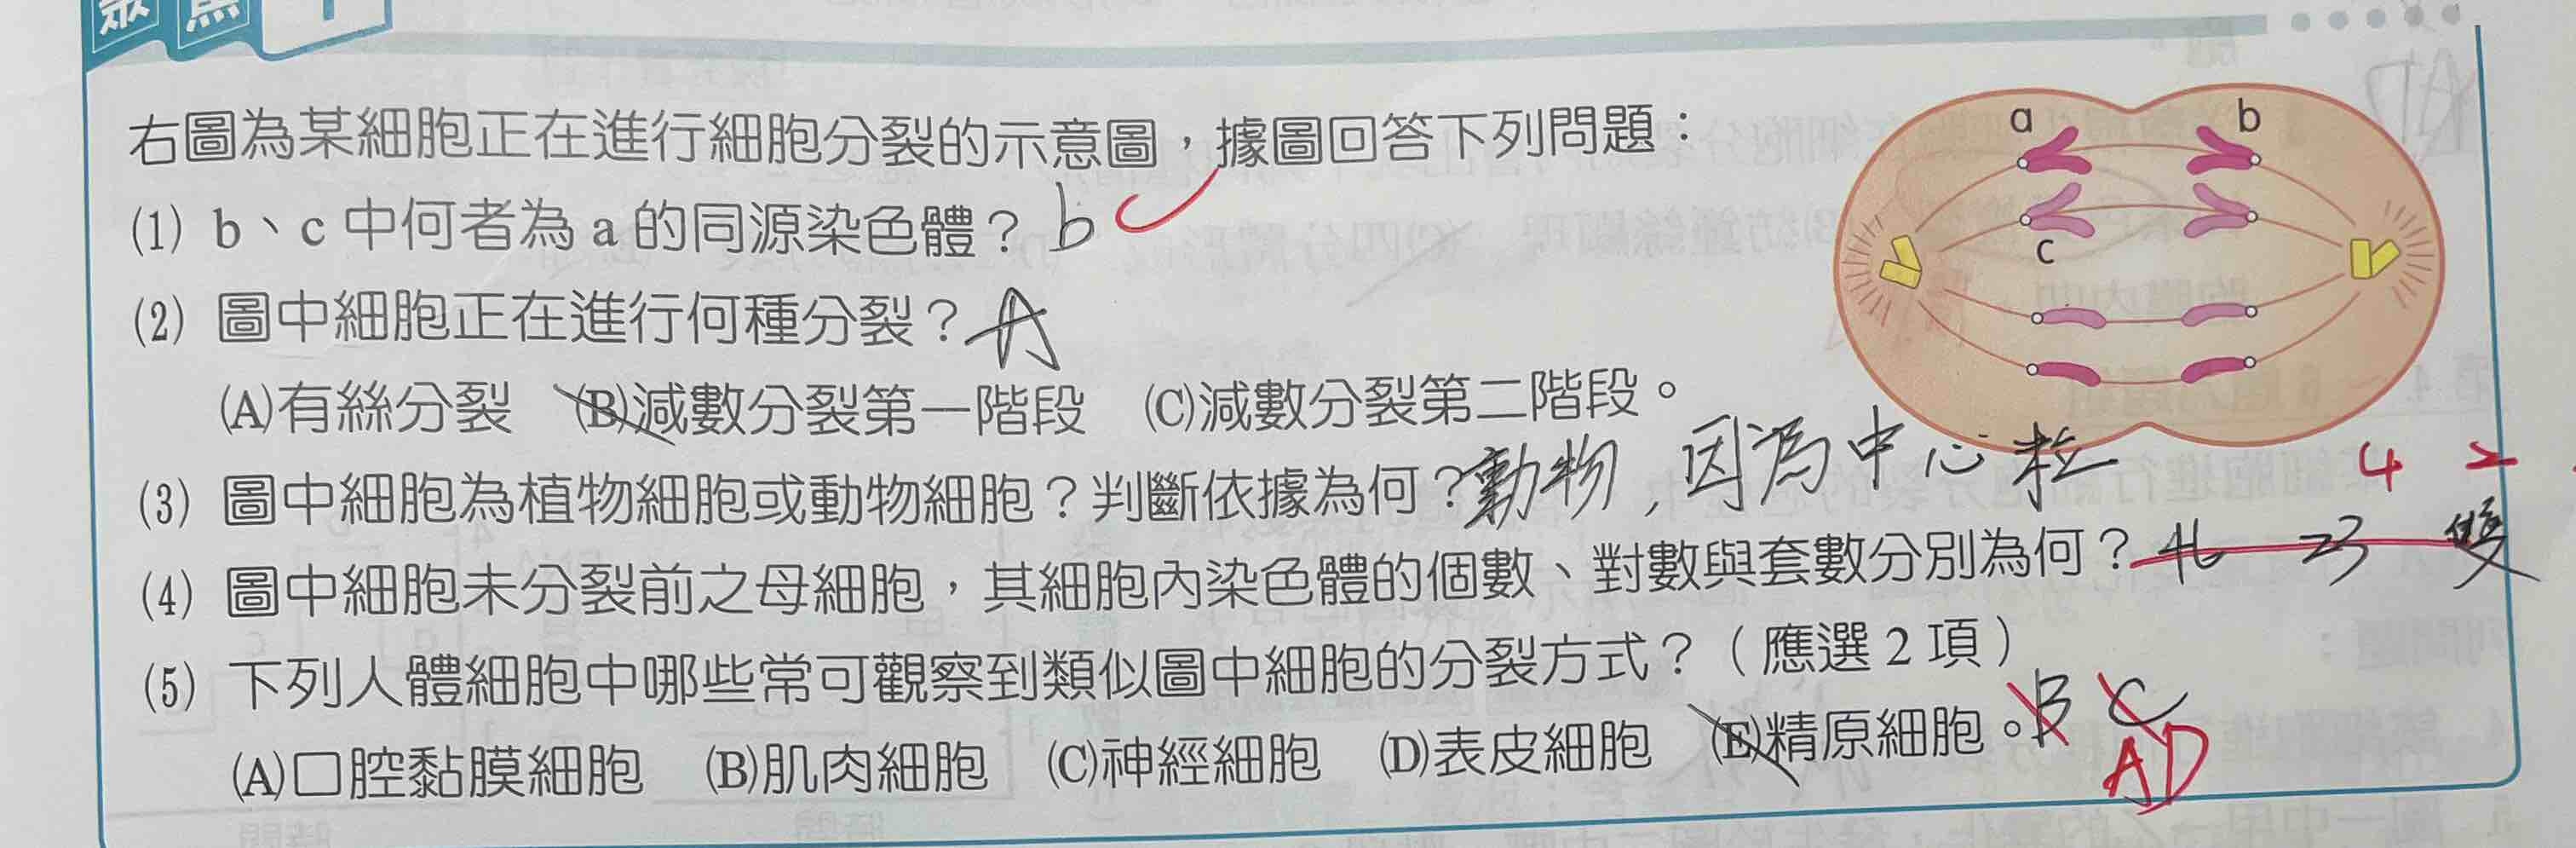 右圖為某細胞正在進行細胞分裂的示意圖，據圖回答下列問題：
(1) b、c 中何者為 a 的同源染色體？b
(2) 圖中細胞正在進行何種分裂？A
(A)有絲分裂 (B)減數分裂第一階段 (C)減數分裂第二階段。
(3) 圖中細胞為植物細胞或動物細胞？判斷依據為何？動物，因為中心粒
4 2
(4) 圖中細胞未分裂前之母細胞，其細胞內染色體的個數、對數與套數分別為何？46 23 雙
(5) 下列人體細胞中哪些常可觀察到類似圖中細胞的分裂方式？（應選 2 項）
(A)口腔黏膜細胞 (B)肌肉細胞 (C)神經細胞 (D)表皮細胞 (E)精原細胞。B C
AD
a b
c